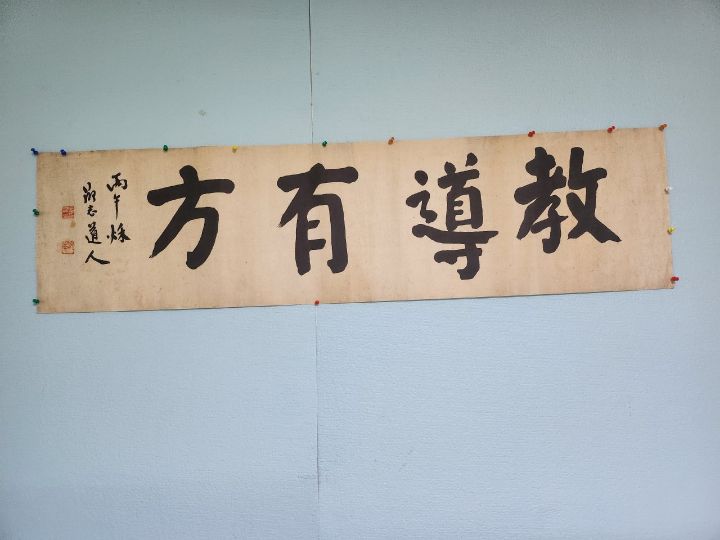 教導有方
丙午秌
道人